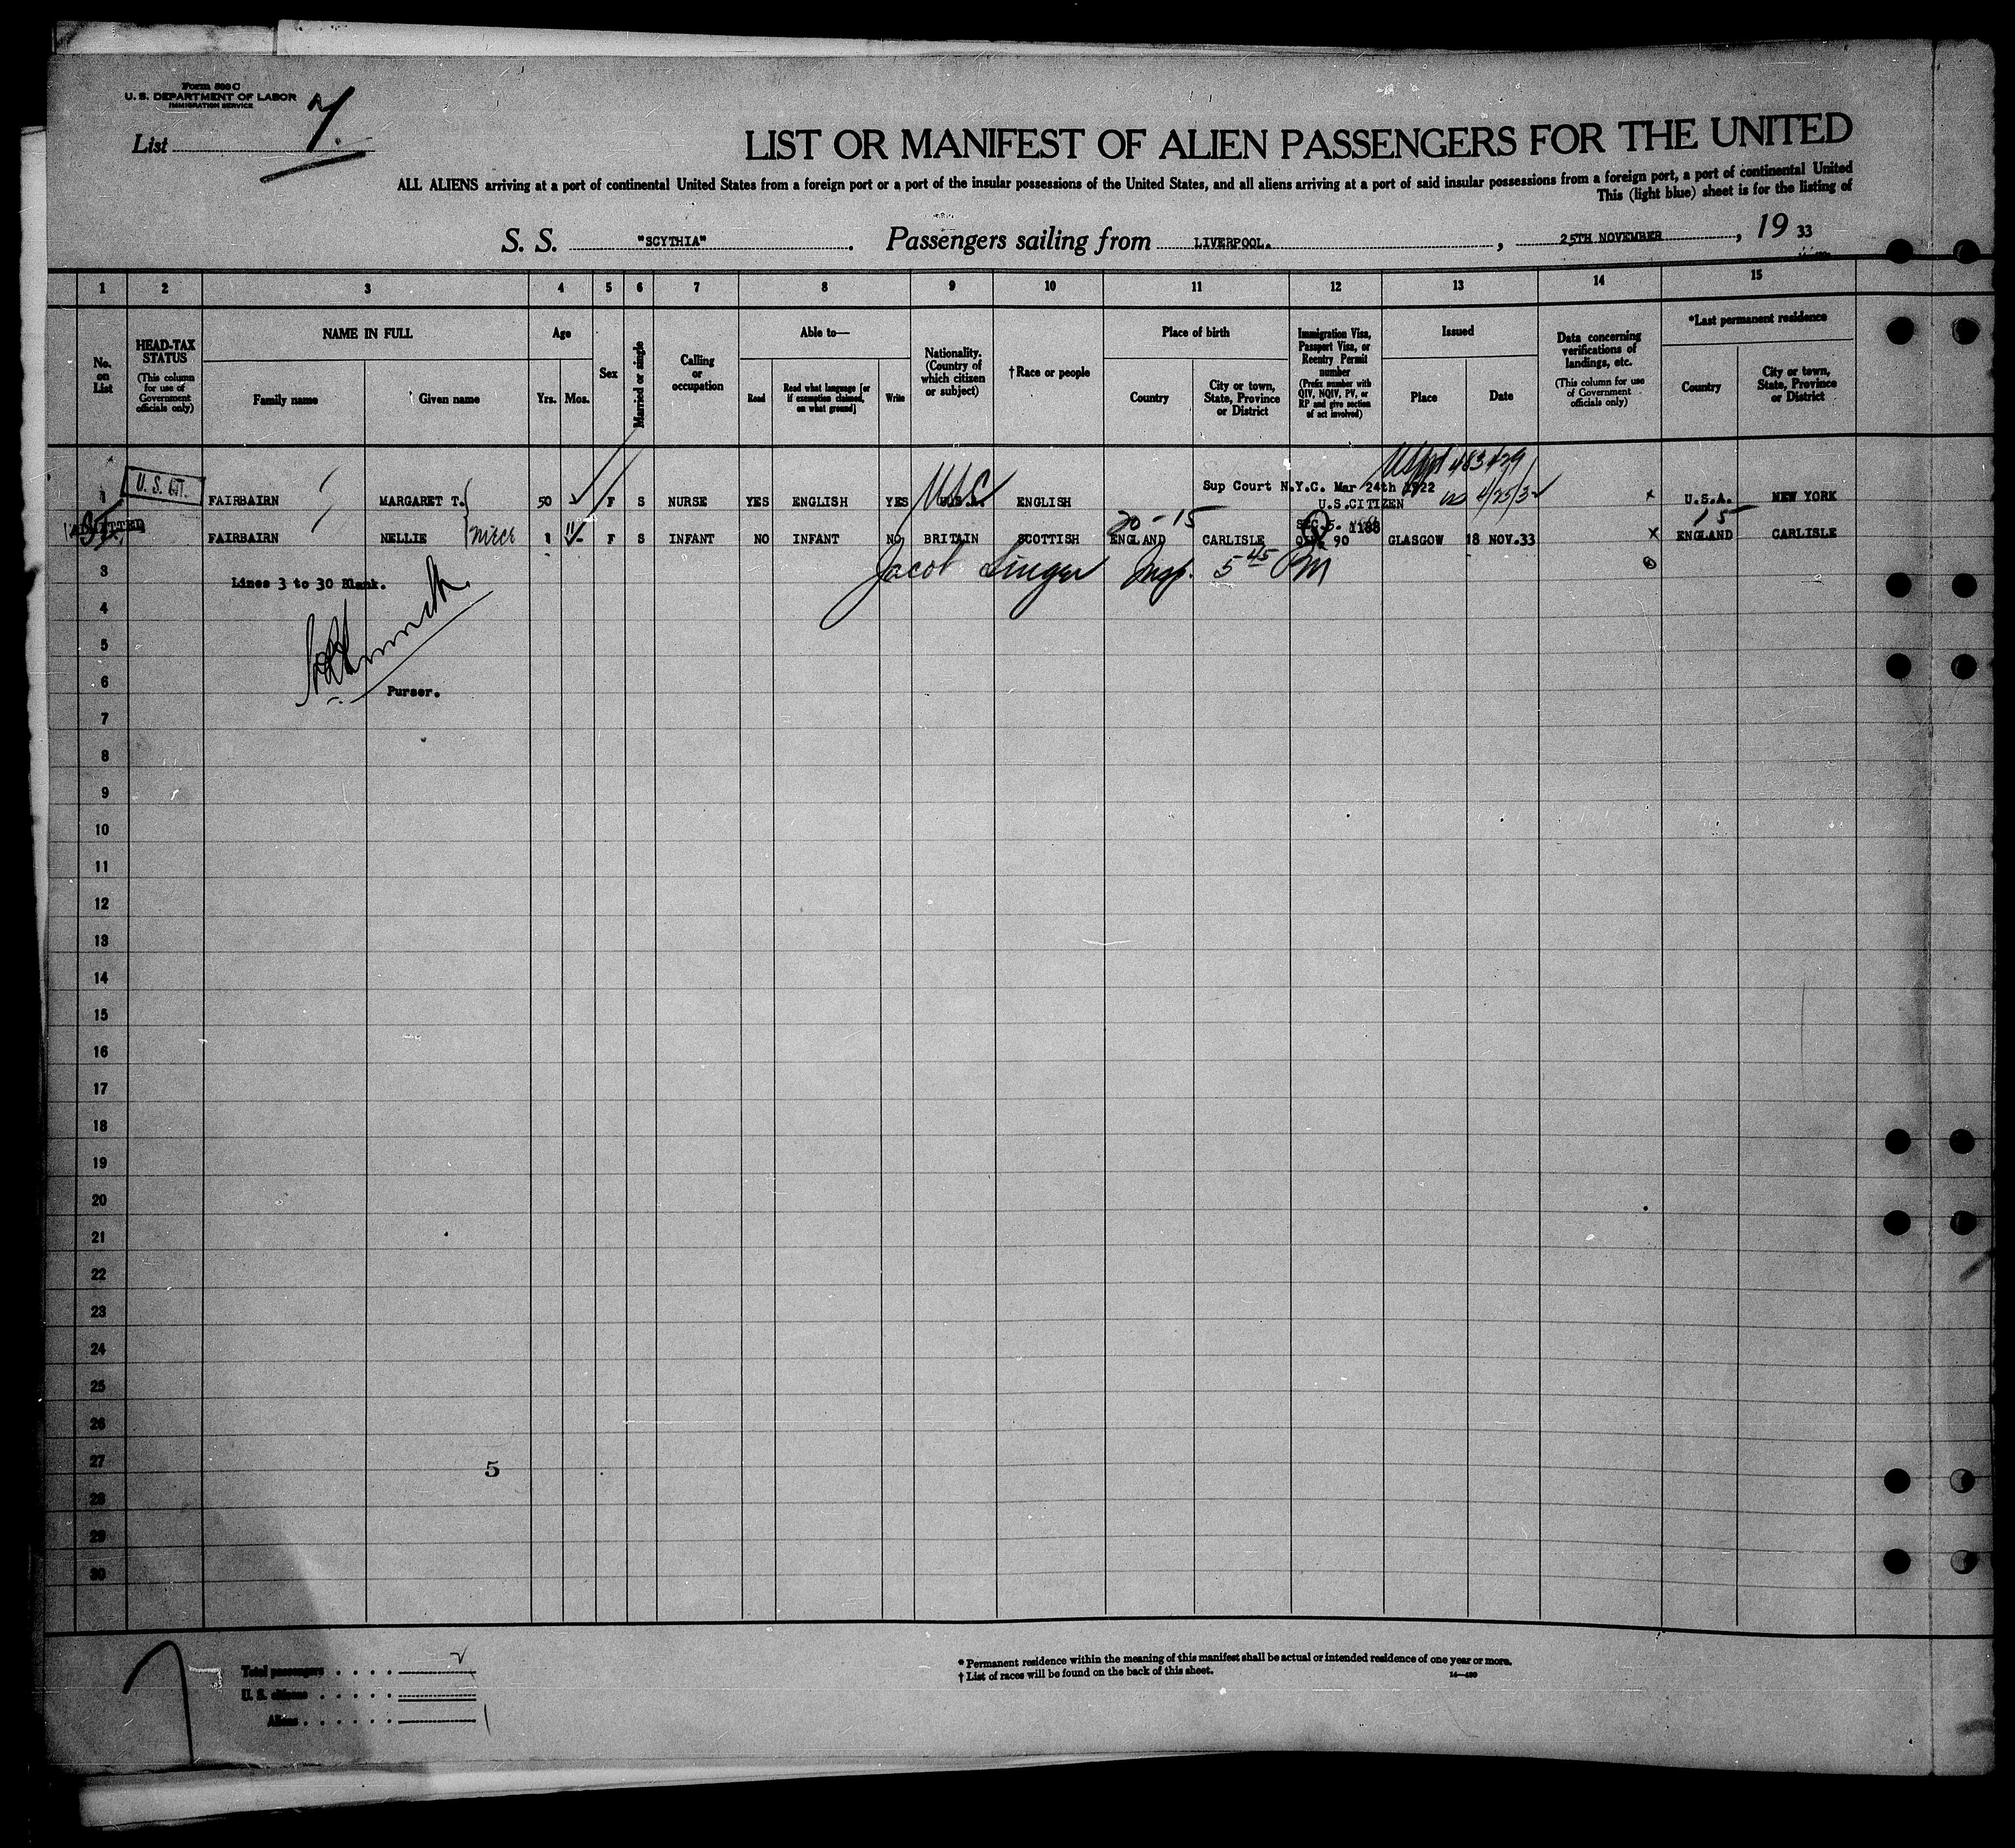 Form 500 C
U. S. DEPARTMENT OF LABOR
IMMIGRATION SERVICE
List 7.
LIST OR MANIFEST OF ALIEN PASSENGERS FOR THE UNITED
ALL ALIENS arriving at a port of continental United States from a foreign port or a port of the insular possessions of the United States, and all aliens arriving at a port of said insular possessions from a foreign port, a port of continental United
This (light blue) sheet is for the listing of
S. S. "SCYTHIA". Passengers sailing from LIVERPOOL. , 25TH NOVEMBER , 19 33
1 2 3 4 5 6 7 8 9 10 11 12 13 14 15
No. on List
HEAD-TAX STATUS
(This column for use of Government officials only)
NAME IN FULL
Family name
Given name
Age
Yrs. Mos.
Sex
Married or single
Calling or occupation
Able to—
Read
Read what language [or if exemption claimed, on what ground]
Write
Nationality. (Country of which citizen or subject)
† Race or people
Place of birth
Country
City or town, State, Province or District
Immigration Visa, Passport Visa, or Reentry Permit number
(Prefix number with QIV, NQIV, PV, or RP and give section of act involved)
Issued
Place
Date
Data concerning verifications of landings, etc.
(This column for use of Government officials only)
*Last permanent residence
Country
City or town, State, Province or District
483429
1 U. S. CIT. FAIRBAIRN MARGARET T. 50 F S NURSE YES ENGLISH YES U.S.A. USC ENGLISH Sup Court N.Y.C. Mar 24th 1922 4/25/32 x U.S.A. NEW YORK
U.S.CITIZEN
20-15 15
ADMITTED FAIRBAIRN NELLIE niece 1 11 F S INFANT NO INFANT NO BRITAIN SCOTTISH ENGLAND CARLISLE SEC.5. 1188 90 GLASGOW 18 NOV.33 x ENGLAND CARLISLE
Jacob Singer Insp. 5 45 PM
3 Lines 3 to 30 Blank.
4
5
6 Purser.
7
8
9
10
11
12
13
14
15
16
17
18
19
20
21
22
23
24
25
26
27 5
28
29
30
Total passengers . . . . 2
U. S. citizens . . . . .
Aliens . . . . . . 1
* Permanent residence within the meaning of this manifest shall be actual or intended residence of one year or more.
† List of races will be found on the back of this sheet.
14—430
7